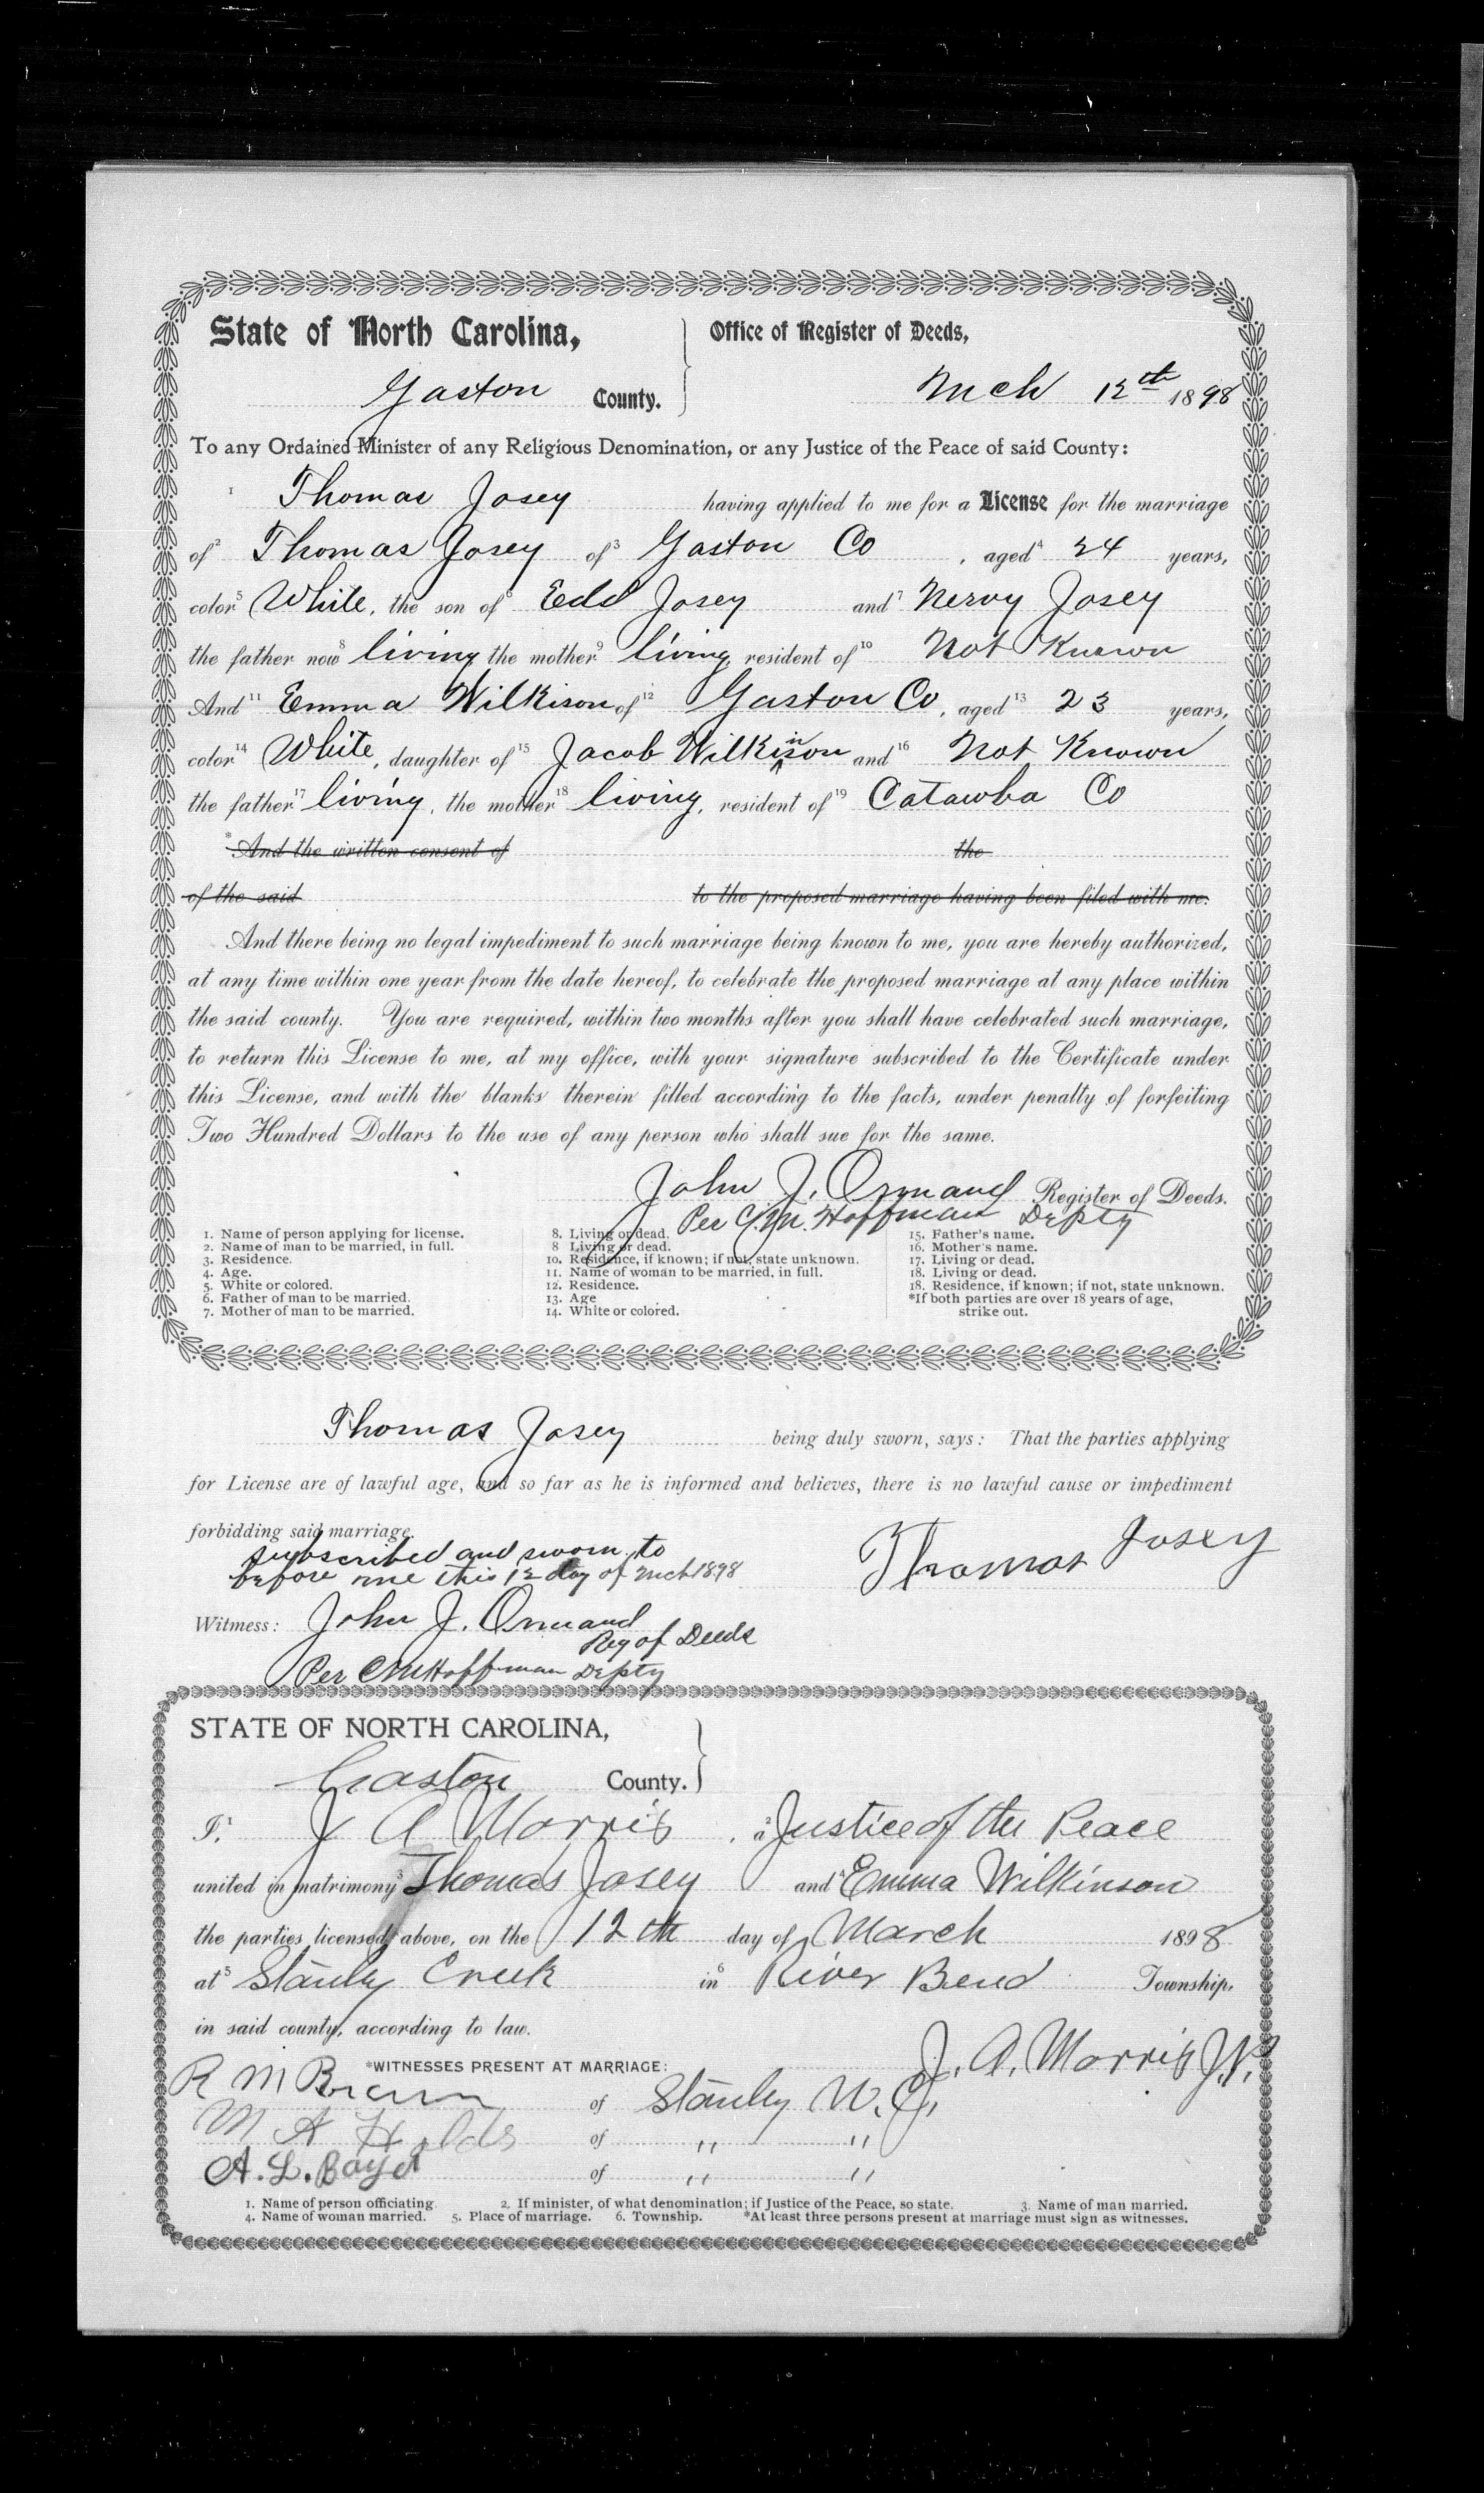 State of North Carolina, Office of Register of Deeds,
Gaston County. Mch 12th 1898
To any Ordained Minister of any Religious Denomination, or any Justice of the Peace of said County:
1 Thomas Josey having applied to me for a License for the marriage
of2 Thomas Josey of3 Gaston Co, aged4 24 years,
color5 White, the son of6 Edd Josey and7 Nervy Josey
the father now8 living the mother9 living, resident of10 Not Known
And11 Emma Wilkison of12 Gaston Co, aged13 23 years,
color14 White, daughter of15 Jacob Wilkinson and16 Not Known
the father17 living, the mother18 living, resident of19 Catawba Co
*And the written consent of the
of the said to the proposed marriage having been filed with me.
And there being no legal impediment to such marriage being known to me, you are hereby authorized,
at any time within one year from the date hereof, to celebrate the proposed marriage at any place within
the said county. You are required, within two months after you shall have celebrated such marriage,
to return this License to me, at my office, with your signature subscribed to the Certificate under
this License, and with the blanks therein filled according to the facts, under penalty of forfeiting
Two Hundred Dollars to the use of any person who shall sue for the same.
John J. Ormand Register of Deeds.
Per C. M. Hoffman Depty
1. Name of person applying for license.
2. Name of man to be married, in full.
3. Residence.
4. Age.
5. White or colored.
6. Father of man to be married.
7. Mother of man to be married.
8. Living or dead.
8 Living or dead.
10. Residence, if known; if not, state unknown.
11. Name of woman to be married, in full.
12. Residence.
13. Age
14. White or colored.
15. Father's name.
16. Mother's name.
17. Living or dead.
18. Living or dead.
18. Residence, if known; if not, state unknown.
*If both parties are over 18 years of age,
strike out.
Thomas Josey being duly sworn, says: That the parties applying
for License are of lawful age, and so far as he is informed and believes, there is no lawful cause or impediment
forbidding said marriage.
subscribed and sworn to
before me this 12 day of Mch 1898
Thomas Josey
Witness: John J. Ormand
Reg of Deeds
Per C M Hoffman Depty
STATE OF NORTH CAROLINA,
Gaston County.
I,1 J A Morris, a2 Justice of the Peace
united in matrimony3 Thomas Josey and4 Emma Wilkinson
the parties licensed above, on the 12th day of March 1898
at5 Stanly Creek in6 River Bend Township,
in said county, according to law.
J. A. Morris J.P.
*WITNESSES PRESENT AT MARRIAGE:
R M Brown of Stanley N. C.
M A of " "
A. L. Boyd of " "
1. Name of person officiating 2. If minister, of what denomination; if Justice of the Peace, so state. 3. Name of man married.
4. Name of woman married. 5. Place of marriage. 6. Township. *At least three persons present at marriage must sign as witnesses.